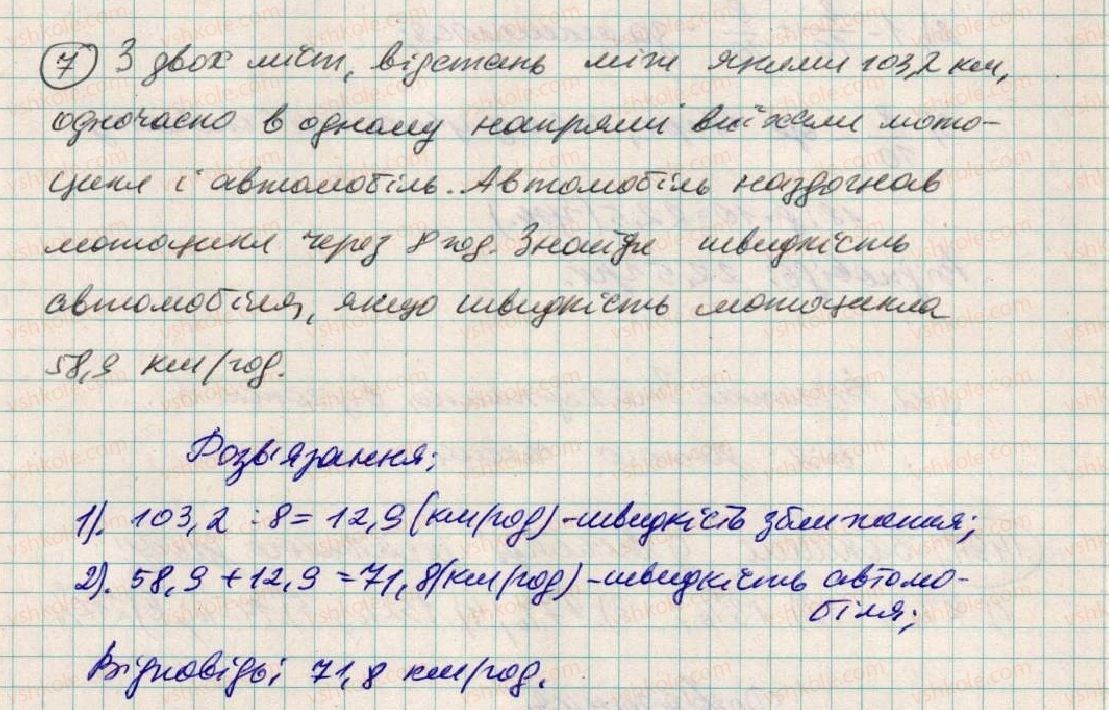 7 З двох міст, відстань між якими 103,2 км,
одночасно в одному напрямі виїхали мото-
цикл і автомобіль. Автомобіль наздогнав
мотоцикл через 8 год. Знайди швидкість
автомобіля, якщо швидкість мотоцикла
58,9 км/год.
Розв'язання:
1). 103,2 : 8 = 12,9 (км/год) - швидкість зближення;
2). 58,9 + 12,9 = 71,8 (км/год) - швидкість автомо-
біля;
Відповідь: 71,8 км/год.